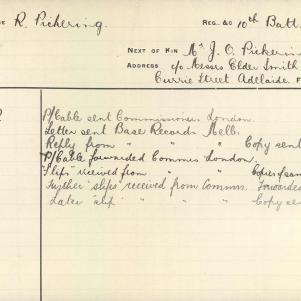 E R. Pickering. REG. &C 10th Batt.
NEXT OF KIN Mr J. O. Pickerin
ADDRESS c/o Messrs Elder Smith
Currie Street Adelaide.
P/Cable sent Commissioner London.
Letter sent Base Records Melb.
Reply from " " " Copy sent
P/Cable forwarded Commrs London.
"Slips" received from " " Copies of sam
Further "slips" received from Commrs. Forwarded
Later "slip" " " Copy se